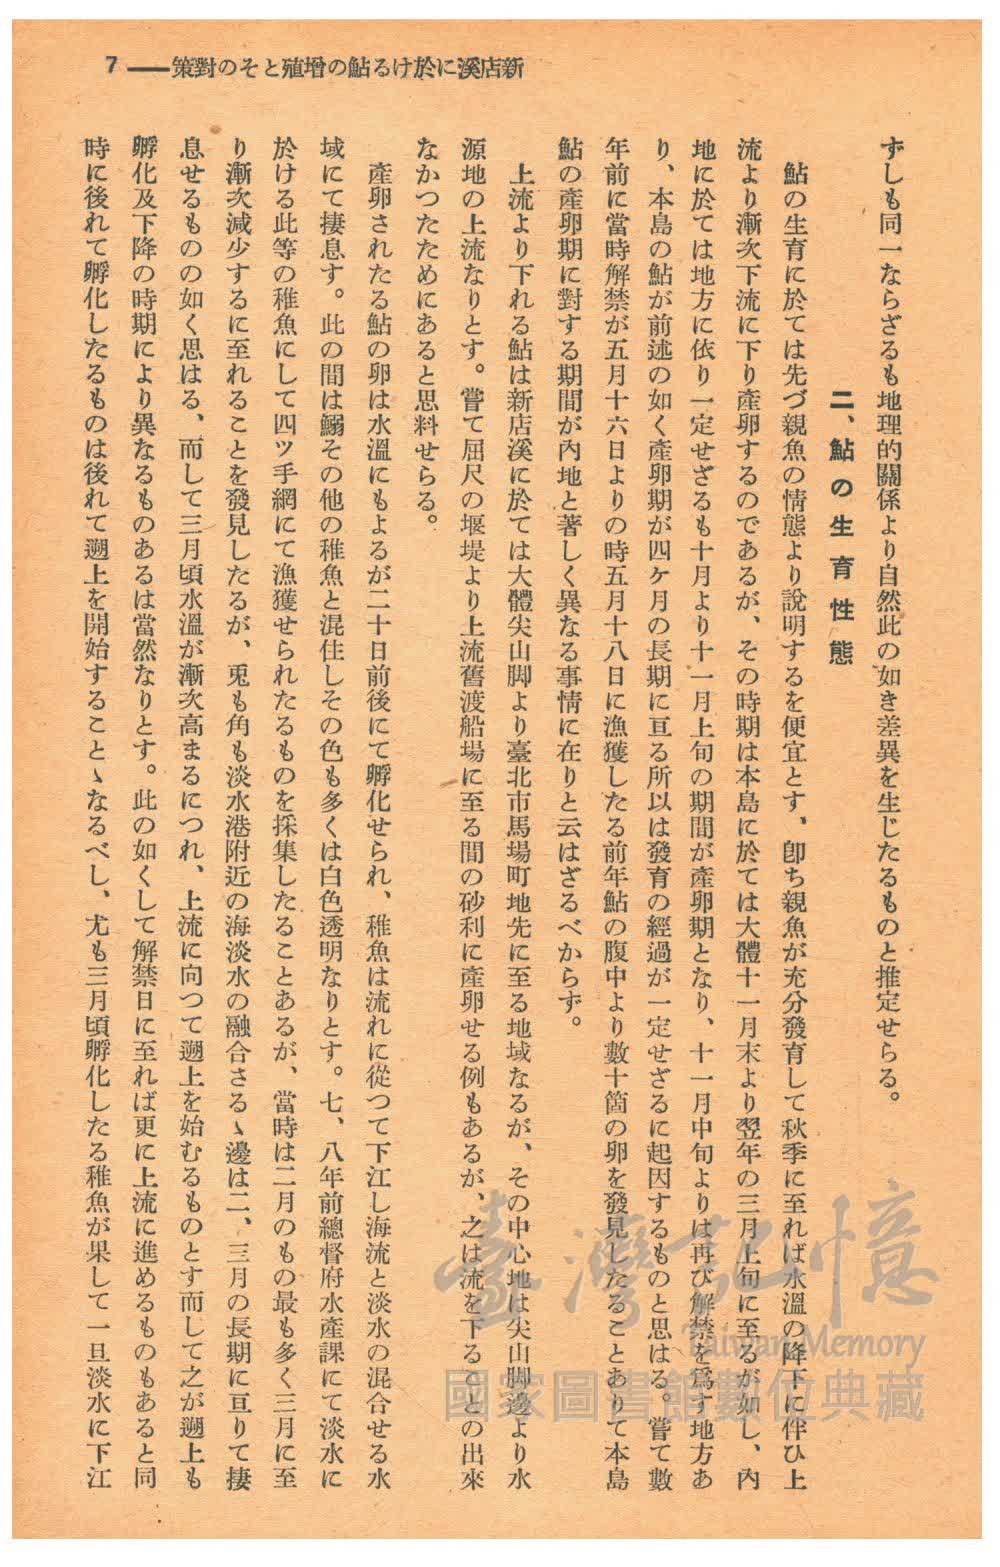 新店溪に於ける鮎の增殖とその對策——7
ずしも同一ならざるも地理的關係より自然此の如き差異を生じたるものと推定せらる。
二、鮎の生育性態
鮎の生育に於ては先づ親魚の情態より說明するを便宜とす、卽ち親魚が充分發育して秋季に至れば水溫の降下に伴ひ上
流より漸次下流に下り產卵するのであるが、その時期は本島に於ては大體十一月末より翌年の三月上旬に至るが如し、內
地に於ては地方に依り一定せざるも十月より十一月上旬の期間が產卵期となり、十一月中旬よりは再び解禁を爲す地方あ
り、本島の鮎が前述の如く產卵期が四ケ月の長期に亘る所以は發育の經過が一定せざるに起因するものと思はる。嘗て數
年前に當時解禁が五月十六日よりの時五月十八日に漁獲したる前年鮎の腹中より數十箇の卵を發見したることありて本島
鮎の產卵期に對する期間が內地と著しく異なる事情に在りと云はざるべからず。
上流より下れる鮎は新店溪に於ては大體尖山脚より臺北市馬場町地先に至る地域なるが、その中心地は尖山脚邊より水
源地の上流なりとす。嘗て屈尺の堰堤より上流舊渡船場に至る間の砂利に產卵せる例もあるが、之は流を下ることの出來
なかつたためにあると思料せらる。
產卵されたる鮎の卵は水溫にもよるが二十日前後にて孵化せられ、稚魚は流れに從つて下江し海流と淡水の混合せる水
域にて棲息す。此の間は鰯その他の稚魚と混住しその色も多くは白色透明なりとす。七、八年前總督府水產課にて淡水に
於ける此等の稚魚にして四ツ手網にて漁獲せられたるものを採集したることあるが、當時は二月のもの最も多く三月に至
り漸次減少するに至れることを發見したるが、兎も角も淡水港附近の海淡水の融合さるゝ邊は二、三月の長期に亘りて棲
息せるものの如く思はる、而して三月頃水溫が漸次高まるにつれ、上流に向つて遡上を始むるものとす而して之が遡上も
孵化及下降の時期により異なるものあるは當然なりとす。此の如くして解禁日に至れば更に上流に進めるものもあると同
時に後れて孵化したるものは後れて遡上を開始することゝなるべし、尤も三月頃孵化したる稚魚が果して一旦淡水に下江
臺灣記憶
Taiwan Memory
國家圖書館數位典藏